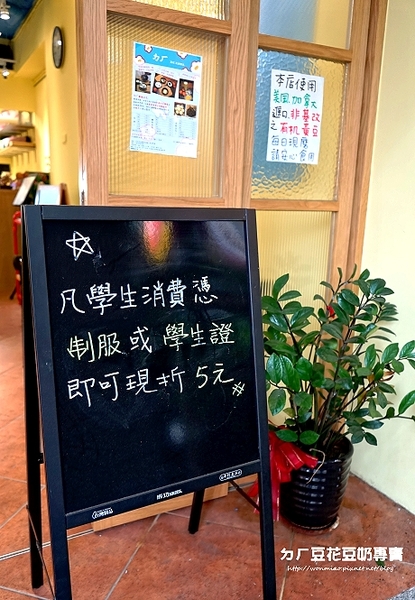 ㄉㄏ
本店使用
美國、加拿大
進口非基改
之有机黃豆
每日現磨
請安心食用
凡學生消費憑
制服或學生證
即可現折 5元
#
ㄉㄏ豆花豆奶專賣
http://wonmiao.pixnet.net/blog